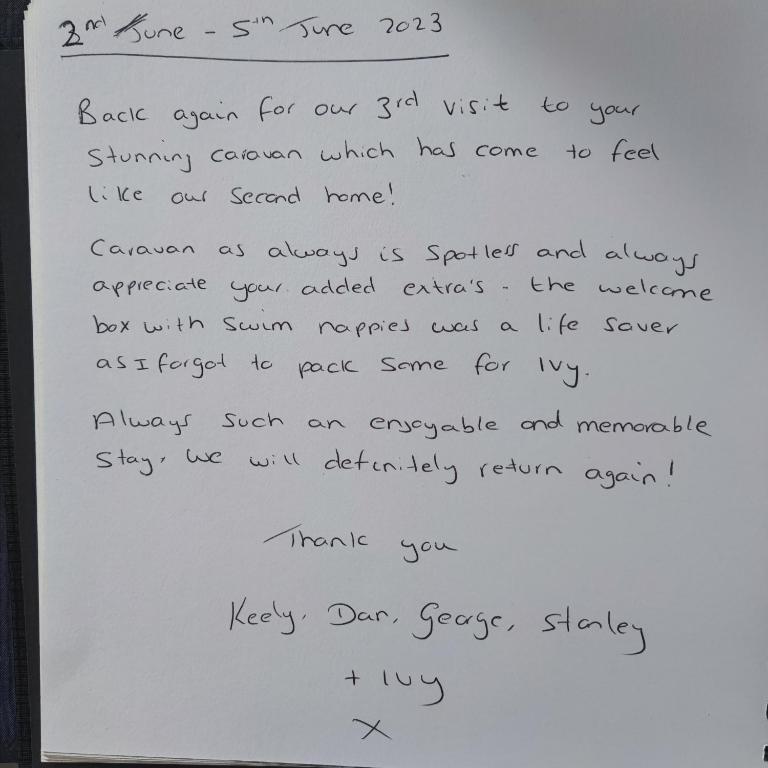 2nd June - 5th June 2023
Back again for our 3rd visit to your
stunning caravan which has come to feel
like our second home!
Caravan as always is spotless and always
appreciate your added extra's - the welcome
box with swim nappies was a life saver
as I forgot to pack some for Ivy.
Always such an enjoyable and memorable
stay, we will definitely return again!
Thank you
Keely, Dan, George, Stanley
+ Ivy
X